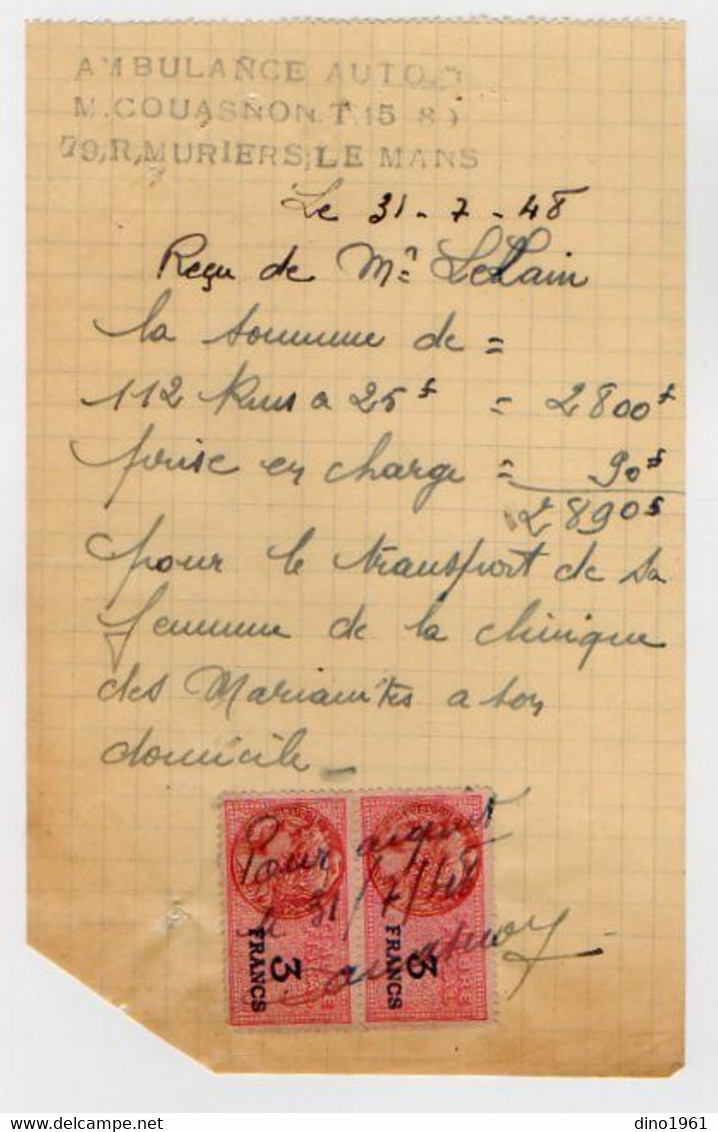 AMBULANCE AUTO
M. COUASNON T. 15 8
79, R, MURIERS, LE MANS
Le 31 - 7 - 48
Reçu de Mr
la somme de =
112 Kms a 25 f = 2800 f
prise en charge = 90 f
2890 f
pour le transport de sa
femme de la clinique
des Marianites a son
domicile _
Pour acquit
le 31/7/48
Couasnon
3 FRANCS
3 FRANCS
dino1961